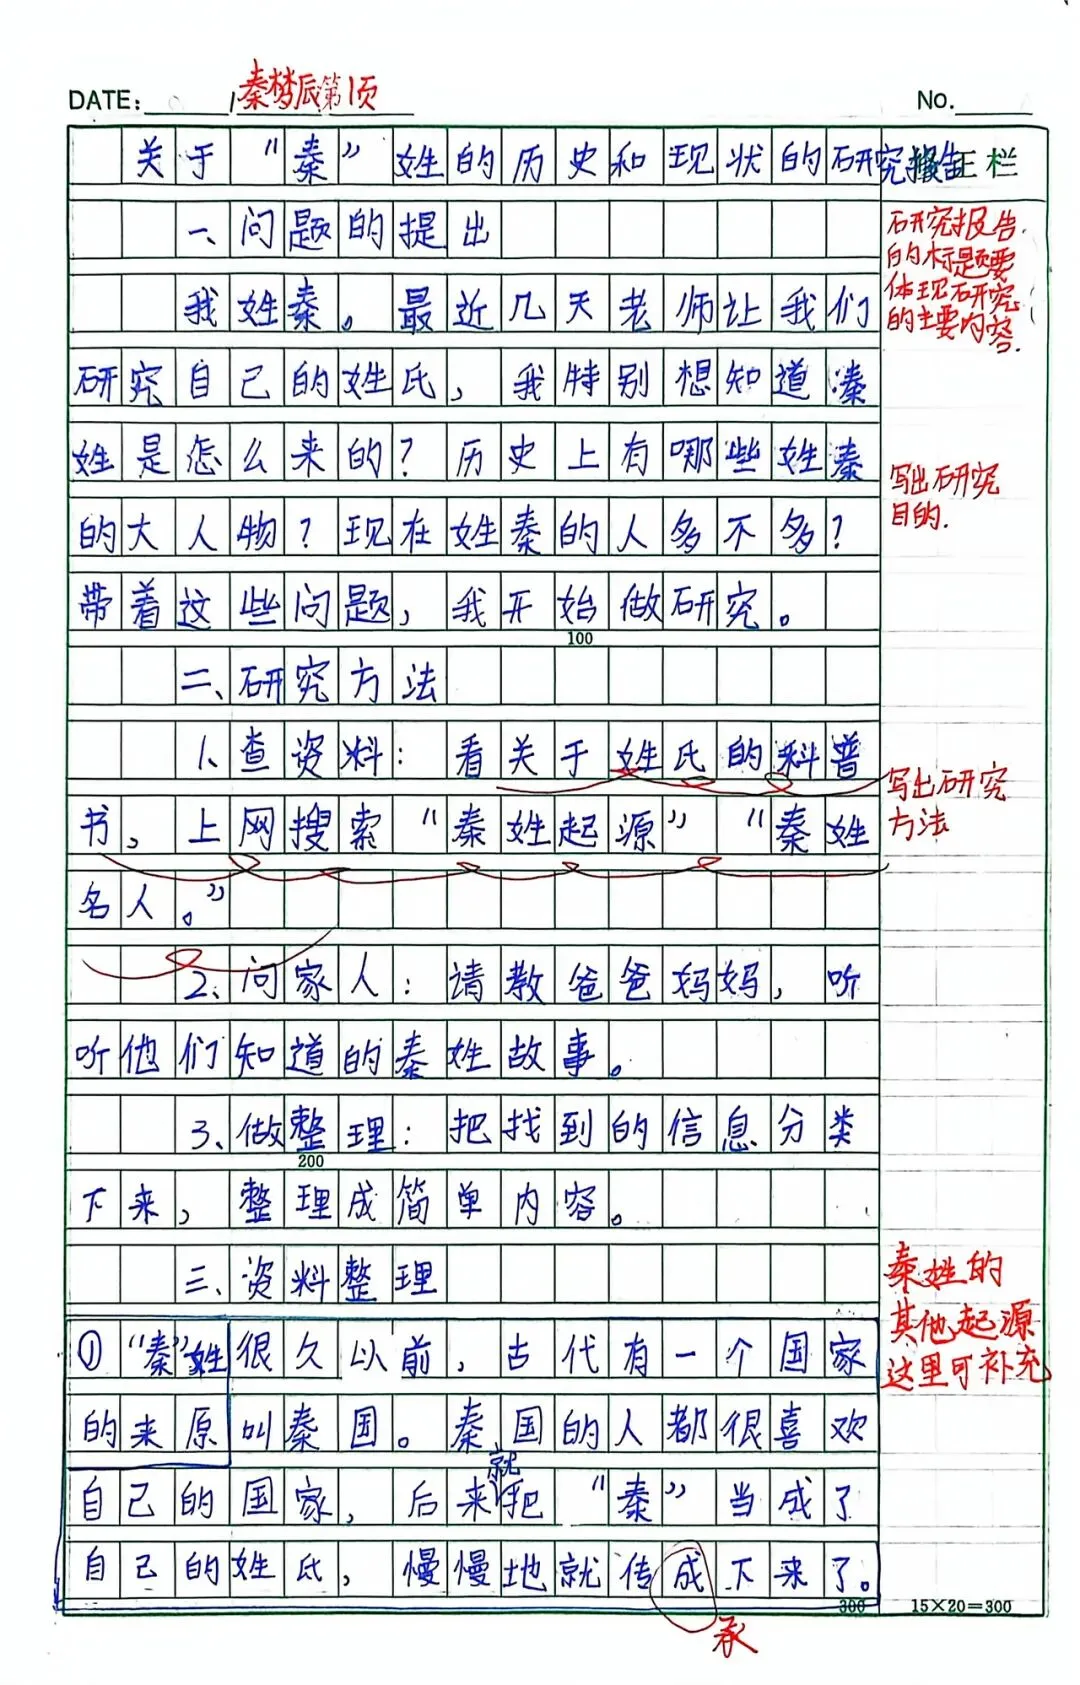 秦梦辰第1页
DATE: No.
关于“秦”姓的历史和现状的研究报告 正栏
一、问题的提出
我姓秦。最近几天老师让我们
研究自己的姓氏，我特别想知道秦
姓是怎么来的？历史上有哪些姓秦
的大人物？现在姓秦的人多不多？
带着这些问题，我开始做研究。
100
二、研究方法
1、查资料：看关于姓氏的科普
书，上网搜索“秦姓起源”“秦姓
名人。”
2、问家人：请教爸爸妈妈，听
听他们知道的秦姓故事。
3、做整理：把找到的信息分类
200
下来，整理成简单内容。
三、资料整理
①“秦”姓
的来原
很久以前，古代有一个国家
叫秦国。秦国的人都很喜欢
自己的国家，后来就把“秦”当成了
自己的姓氏，慢慢地就传成下来了。
承
300
15×20=300
研究报告
的标题要
体现研究
的主要内容.
写出研究
目的.
写出研究
方法
秦姓的
其他起源
这里可补充